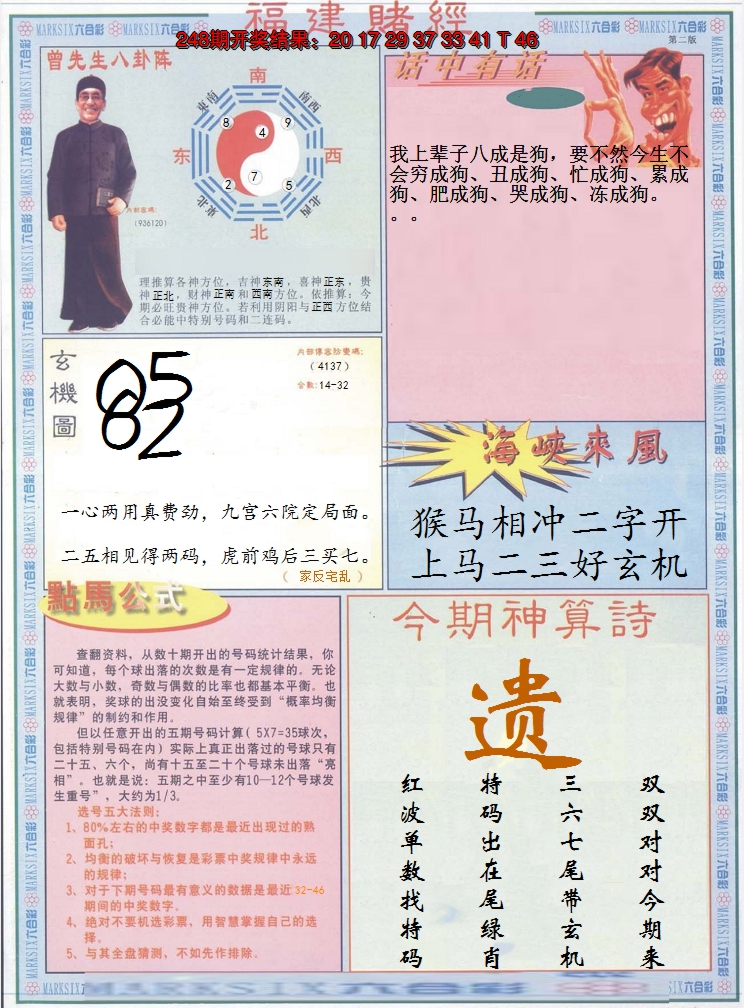 福建賭經
248期开奖结果：20 17 29 37 33 41 T 46
MARKSIX六合彩 MARKSIX六合彩
MARKSIX六合彩 MARKSIX六合彩
第二版
曾先生八卦阵
南
东南
西南
8
9
4
东
西
7
2
5
東北
西北
北
内部密碼:
（936120）
理推算各神方位，吉神东南，喜神正东，贵
神正北，财神正南和西南方位。依推算：今
期必旺贵神方位。若利用阴阳与正西方位结
合必能中特别号码和二连码。
话中有话
我上辈子八成是狗，要不然今生不
会穷成狗、丑成狗、忙成狗、累成
狗、肥成狗、哭成狗、冻成狗。
。。
玄機圖
05
62
内部傳密防變碼:
（4137）
合数:14-32
一心两用真费劲，九宫六院定局面。
二五相见得两码，虎前鸡后三买七。
（ 家反宅乱 ）
海峽來風
猴马相冲二字开
上马二三好玄机
點馬公式
查翻资料，从数十期开出的号码统计结果，你
可知道，每个球出落的次数是有一定规律的。无论
大数与小数，奇数与偶数的比率也都基本平衡。也
就表明，奖球的出没变化自始至终受到“概率均衡
规律”的制约和作用。
但以任意开出的五期号码计算( 5X7=35球次，
包括特别号码在内) 实际上真正出落过的号球只有
二十五、六个，尚有十五至二十个号球未出落“亮
相”。也就是说：五期之中至少有10—12个号球发
生重号”，大约为1/3。
选号五大法则:
1、80%左右的中奖数字都是最近出现过的熟
面孔;
2、均衡的破坏与恢复是彩票中奖规律中永远
的规律;
3、对于下期号码最有意义的数据是最近 32-46
期间的中奖数字。
4、绝对不要机选彩票，用智慧掌握自己的选
择。
5、与其全盘猜测，不如先作排除。
今期神算詩
遗
双双对对今期来
三六七尾带玄机
特码出在尾绿肖
红波单数找特码
MARKSIX六合彩